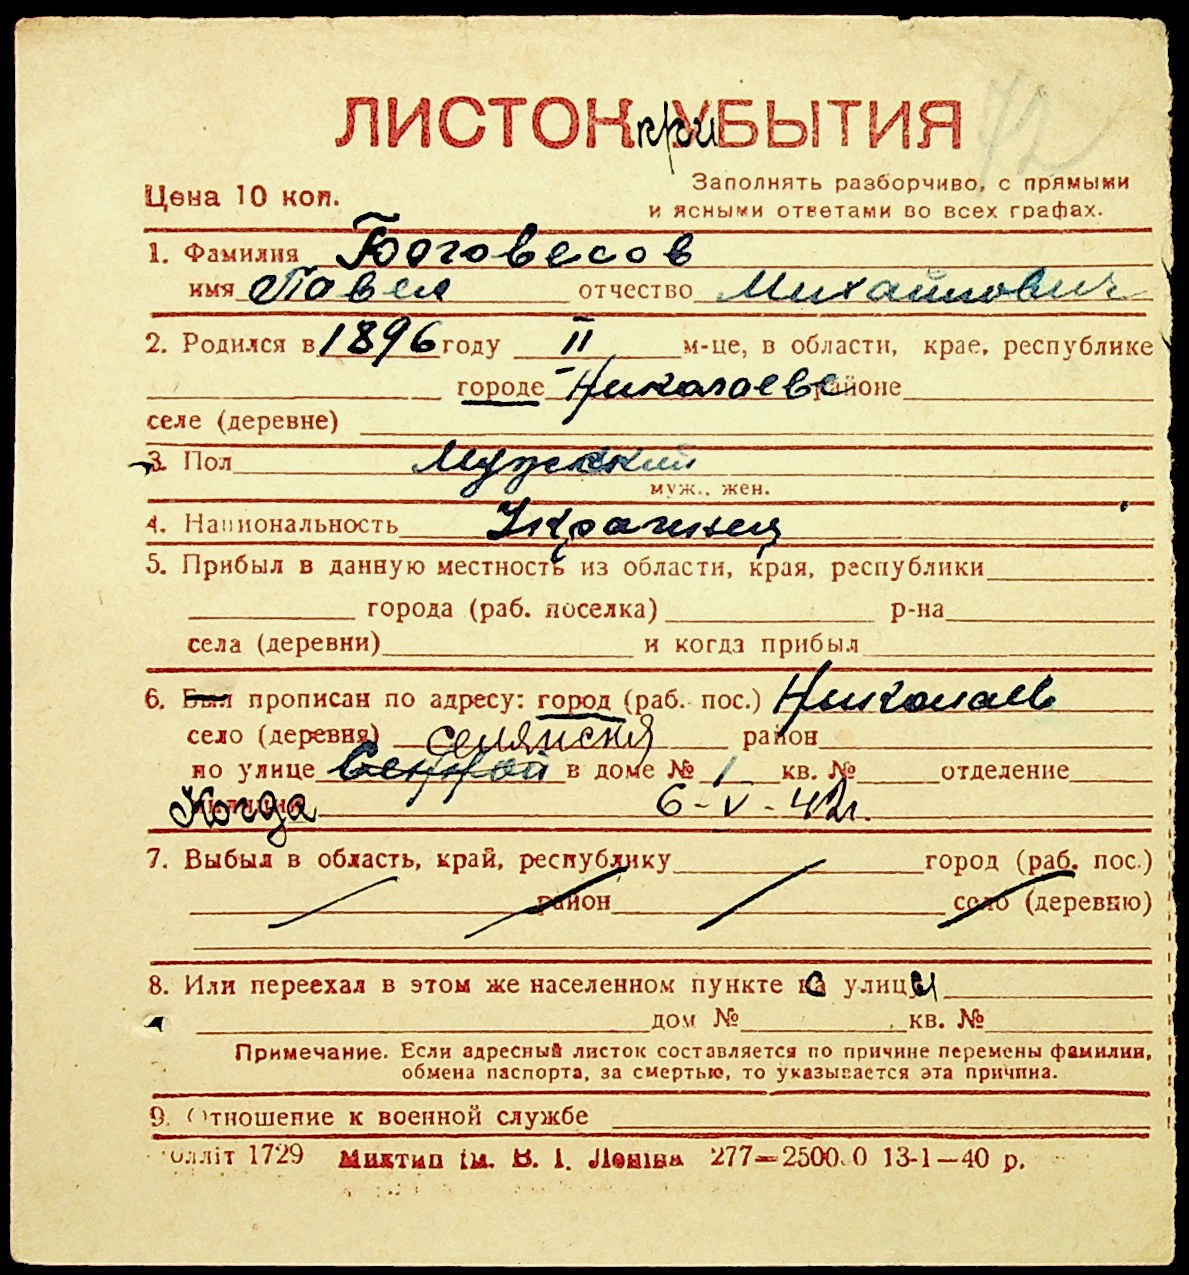 ЛИСТОК при УБЫТИЯ 72
Цена 10 коп.
Заполнять разборчиво, с прямыми
и ясными ответами во всех графах.
1. Фамилия Боговесов
имя Павел отчество Михайлович
2. Родился в 1896 году II м-це, в области, крае, республике
городе Николаеве районе
селе (деревне)
3. Пол Мужский
муж., жен.
4. Национальность Украинец
5. Прибыл в данную местность из области, края, республики
города (раб. поселка) р-на
села (деревни) и когда прибыл
6. Был прописан по адресу: город (раб. пос.) Николаев
село (деревня) район
по улице в доме № 1 кв. № отделение
Когда 6-V-42г.
7. Выбыл в область, край, республику город (раб. пос.)
район село (деревню)
8. Или переехал в этом же населенном пункте с улици
дом № кв. №
Примечание. Если адресный листок составляется по причине перемены фамилии,
обмена паспорта, за смертью, то указывается эта причина.
9. Отношение к военной службе
олліт 1729 Миктип ім. В. І. Леніна 277—2500.0 13-1—40 р.